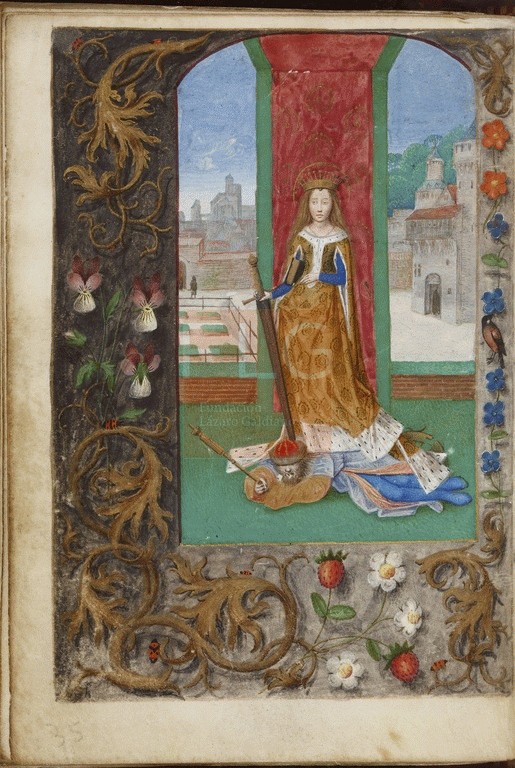 Fundación
Lázaro Galdiano